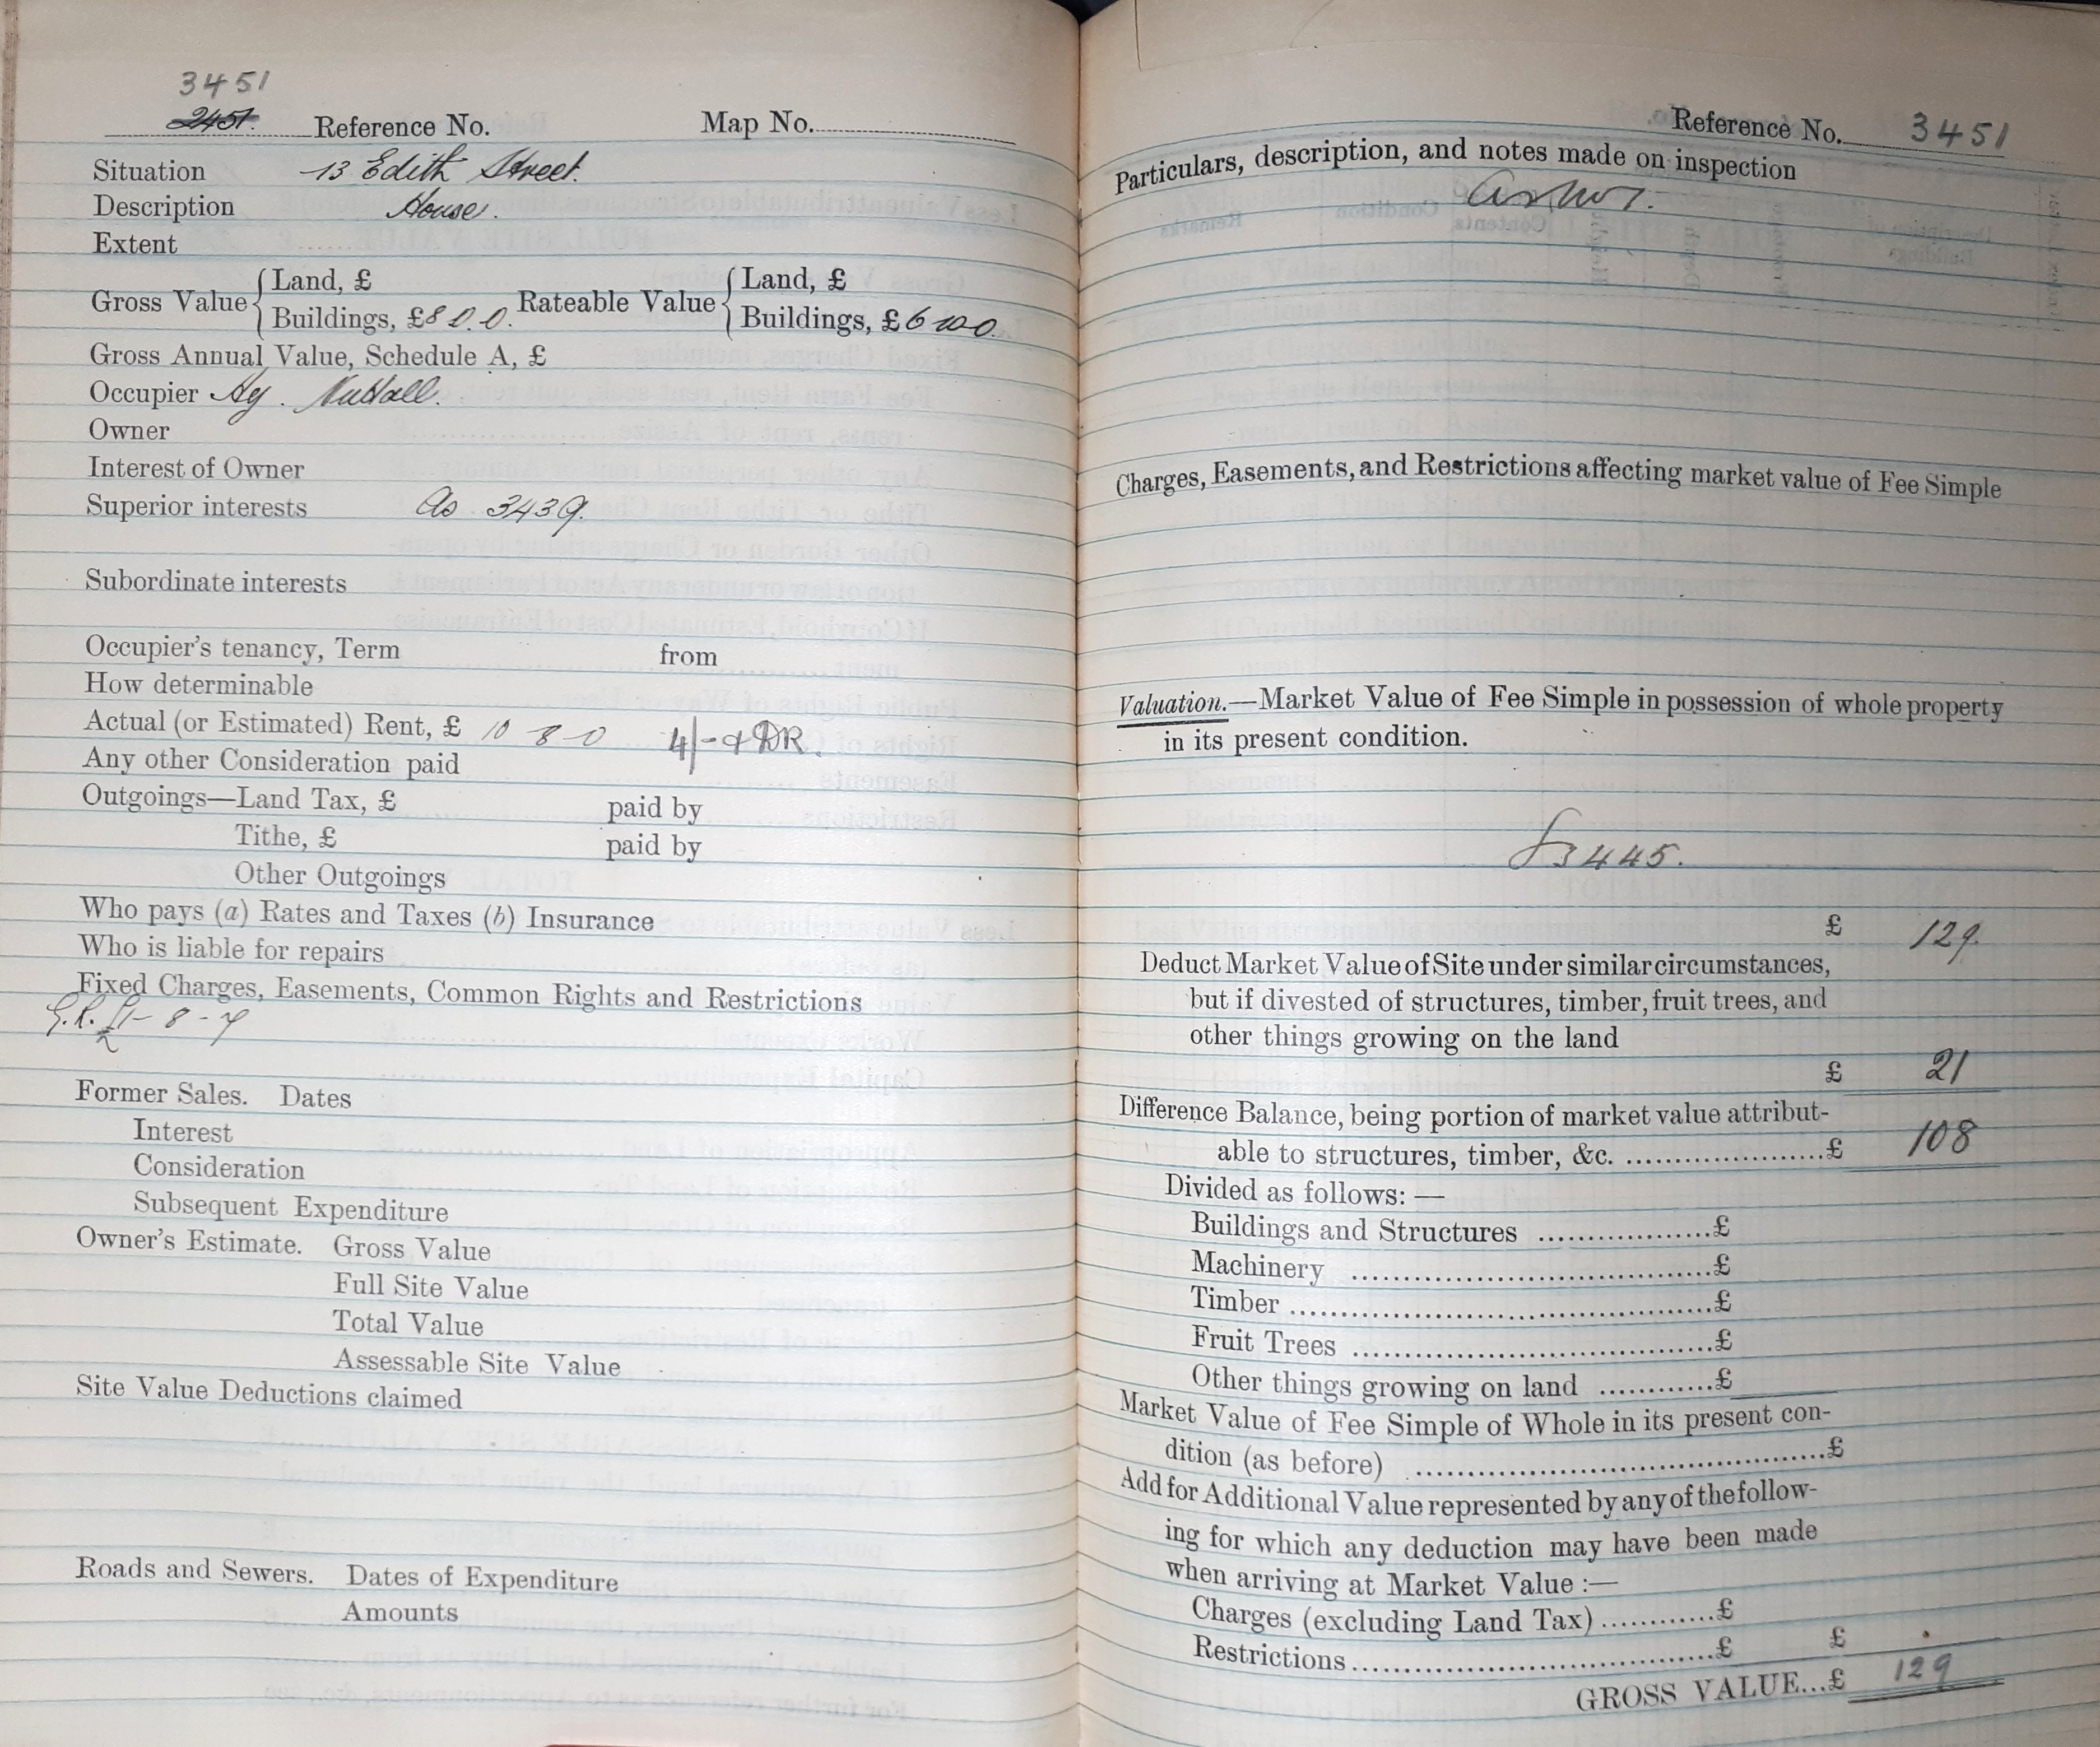 3451
2451. Reference No. Map No.
Situation 13 Edith Street.
Description House.
Extent
Gross Value { Land, £ Rateable Value { Land, £
Buildings, £8.0.0. Buildings, £6 10 0.
Gross Annual Value, Schedule A, £
Occupier Hy. Nuttall.
Owner
Interest of Owner
Superior interests As 3439.
Subordinate interests
Occupier's tenancy, Term from
How determinable
Actual (or Estimated) Rent, £ 10 8 0 4/- & DR.
Any other Consideration paid
Outgoings—Land Tax, £ paid by
Tithe, £ paid by
Other Outgoings
Who pays (a) Rates and Taxes (b) Insurance
Who is liable for repairs
Fixed Charges, Easements, Common Rights and Restrictions
G.R. £1-8-4
Former Sales. Dates
Interest
Consideration
Subsequent Expenditure
Owner's Estimate. Gross Value
Full Site Value
Total Value
Assessable Site Value
Site Value Deductions claimed
Roads and Sewers. Dates of Expenditure
Amounts
Reference No. 3451
Particulars, description, and notes made on inspection
Charges, Easements, and Restrictions affecting market value of Fee Simple
Valuation.—Market Value of Fee Simple in possession of whole property
in its present condition.
3445.
£ 129.
Deduct Market Value of Site under similar circumstances,
but if divested of structures, timber, fruit trees, and
other things growing on the land
£ 21
Difference Balance, being portion of market value attribut-
able to structures, timber, &c. ......................£ 108
Divided as follows: —
Buildings and Structures ...................£
Machinery .......................................£
Timber ..............................................£
Fruit Trees .......................................£
Other things growing on land ............£
Market Value of Fee Simple of Whole in its present con-
dition (as before) .............................................£
Add for Additional Value represented by any of the follow-
ing for which any deduction may have been made
when arriving at Market Value :—
Charges (excluding Land Tax) ............£
Restrictions .......................................£ £
GROSS VALUE...£ 129